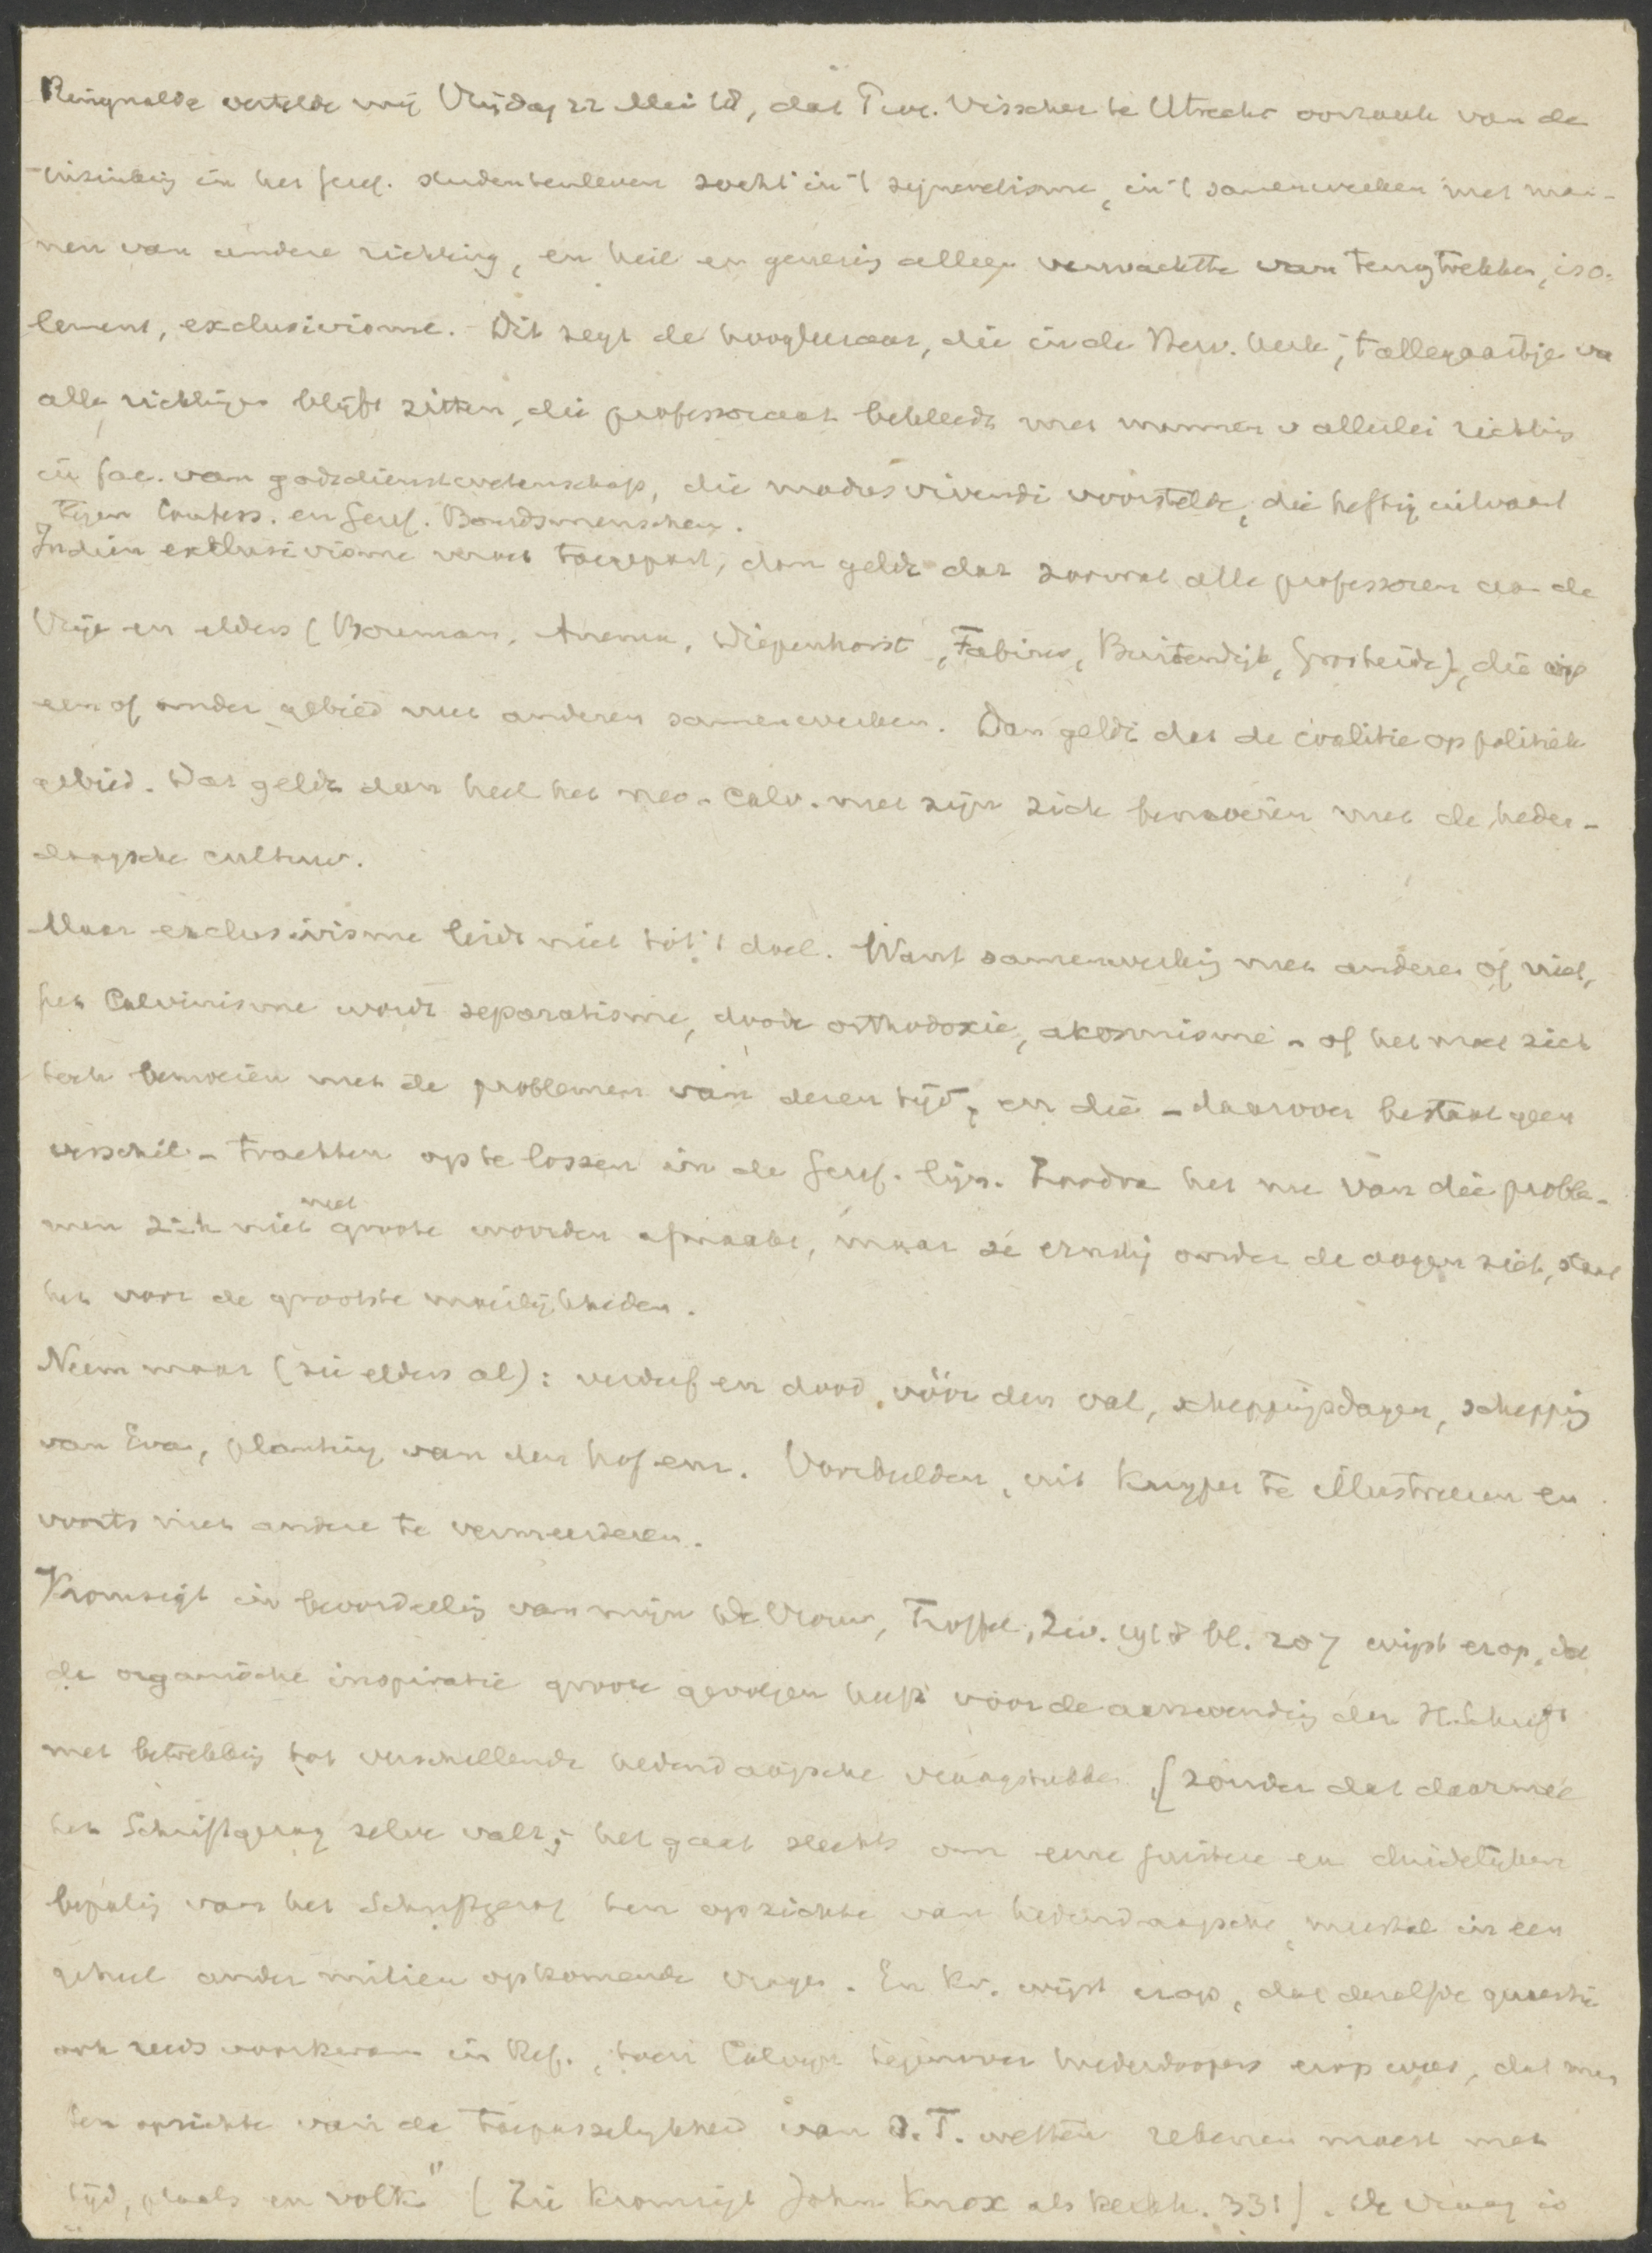 Ringnalda vertelde mij Vrijdag 22 Mei 18, dat Prof. Visscher te Utrecht oorzaak van de
inzinking in het Geref. studentenleven zocht in 't synerelisme, in 't samenwerken met man-
nen van andere richting, en heil en genezing alleen verwachtte van terugtrekken, iso-
lement, exclusivisme. Dit zegt de hoogleeraar, die in de Herv. kerk, 't allegaartje van
alle richtingen blijft zitten, die professoraat bekleedt met mannen v allerlei richting
in fac. van godsdienstwetenschap, die modus vivendi voorstelde, die heftig uitvaart
tegen Confess. en Geref. Bondsmenschen.
Indien exclusivisme wordt toegepast, dan geldt dat zoowat alle professoren aan de
Vrije en elders (Bouman, Anema, Diepenhorst, Fabius, Buitendijk, Grosheide), die op
een of ander gebied met anderen samenwerken. Dan geldt dat de coalitie op politiek
gebied. Dat geldt dan heel het neo-Calv. met zijn zich bemoeien met de heden-
daagsche cultuur.
Maar exclusivisme leidt niet tot 't doel. Want samenwerking met anderen of niet,
het Calvinisme wordt separatisme, doode orthodoxie, akosmisme - of het moet zich
toch bemoeien met de problemen van dezen tijd, en die - daarover bestaat geen
verschil - trachten op te lossen in de Geref. lijn. Zoodra het nu van die proble-
men zich niet met groote woorden afmaakt, maar ze ernstig onder de oogen ziet, staat
het voor de grootste moeilijkheden.
Neem maar (zie elders al): verderf en dood vóór den val, scheppingsdagen, schepping
van Eva, planting van den hof enz. Voorbeelden, uit Kuyper te illustreeren en
voorts met andere te vermeerderen.
Kromsigt in beoordeeling van mijn De Vrouw, Troffel, Nov. 1918 bl. 207 wijst erop, dat
de organische inspiratie groote gevolgen heeft voor de aanwending der H. Schrift
met betrekking tot verschillende hedendaagsche vraagstukken, [zonder dat daarmee
het Schriftgezag zelve valt; het gaat slechts om eene juistere en duidelijker
bepaling van het Schriftgezag ten opzichte van hedendaagsche, meestal in een
geheel ander milieu opkomende vragen. En Kr. wijst erop, dat dezelfde quaestie
ook reeds voorkwam in Ref., toen Calvijn tegenover wederdoopers erop wees, dat men
ten opzichte van de toepasselijkheid van O.T. wetten rekenen moest met
„tijd, plaats en volk" (Zie Kromsigt John Knox als kerkh. 331). De vraag is